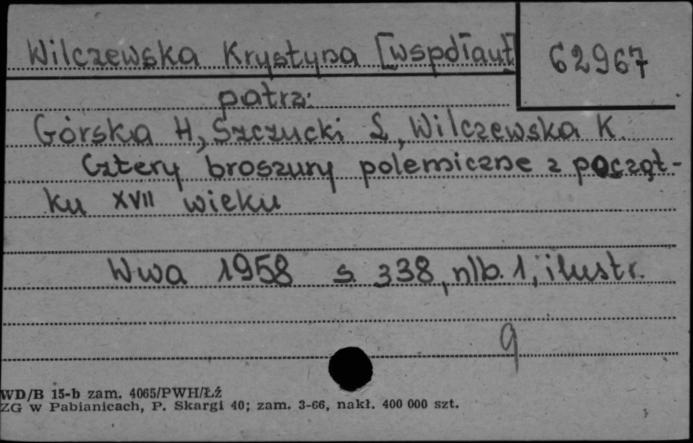 Wilczewska Krystyna [współaut]
62967
patrz:
Górska H, Szczucki L, Wilczewska K.
Cztery broszury polemiczne z począt-
ku XVII wieku
Wwa 1958 s 338, nlb. 1, ilustr.
9
WD/B 15-b zam. 4065/PWH/Łź
ZG w Pabianicach, P. Skargi 40; zam. 3-66, nakł. 400 000 szt.